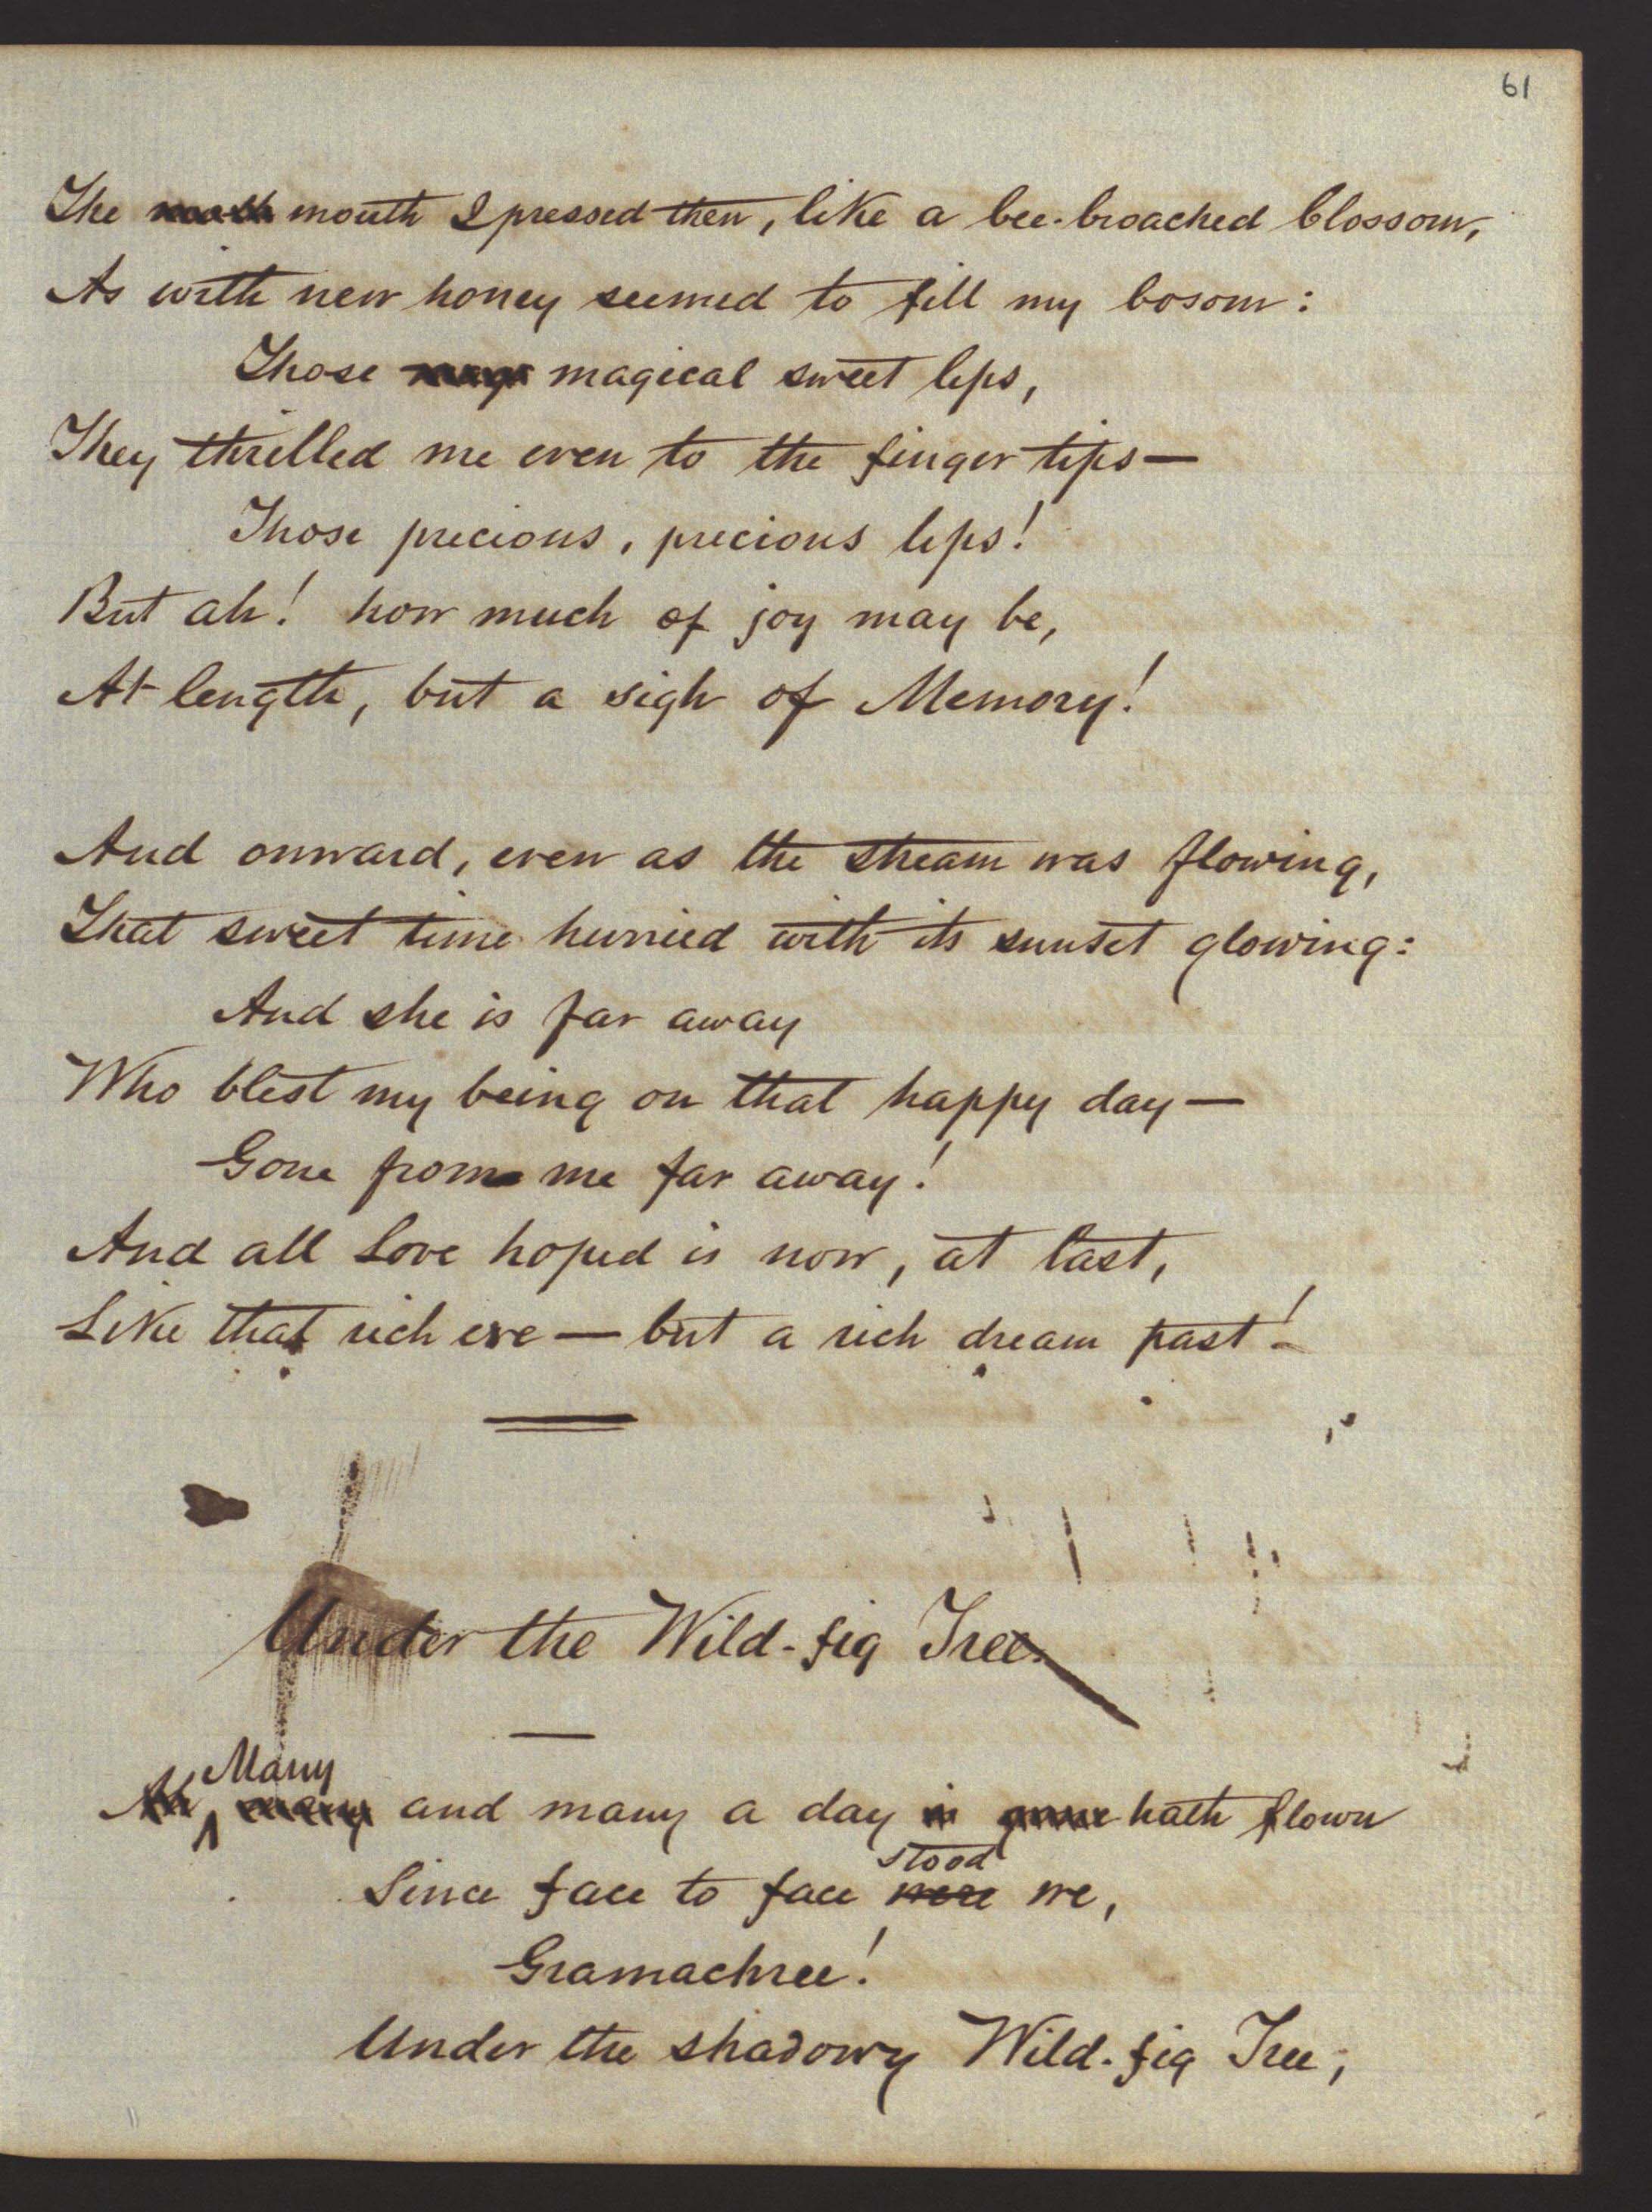 61
The mouth I pressed then, like a bee-broached blossom,
As with new honey seemed to fill my bosom:
Those magical sweet lips,
They thrilled me even to the finger tips—
Those precious, precious lips!
But ah! how much of joy may be,
At length, but a sigh of Memory!
And onward, even as the stream was flowing,
That sweet time hurried with its sunset glowing:
And she is far away
Who blest my being on that happy day—
Gone from me far away!
And all Love hoped is now, at last,
Like that rich eve — but a rich dream past!
Under the Wild-fig Tree.
Many
Ah, many and many a day is gone hath flown
stood
Since face to face were we,
Gramachree!
Under the shadowy Wild-fig Tree;